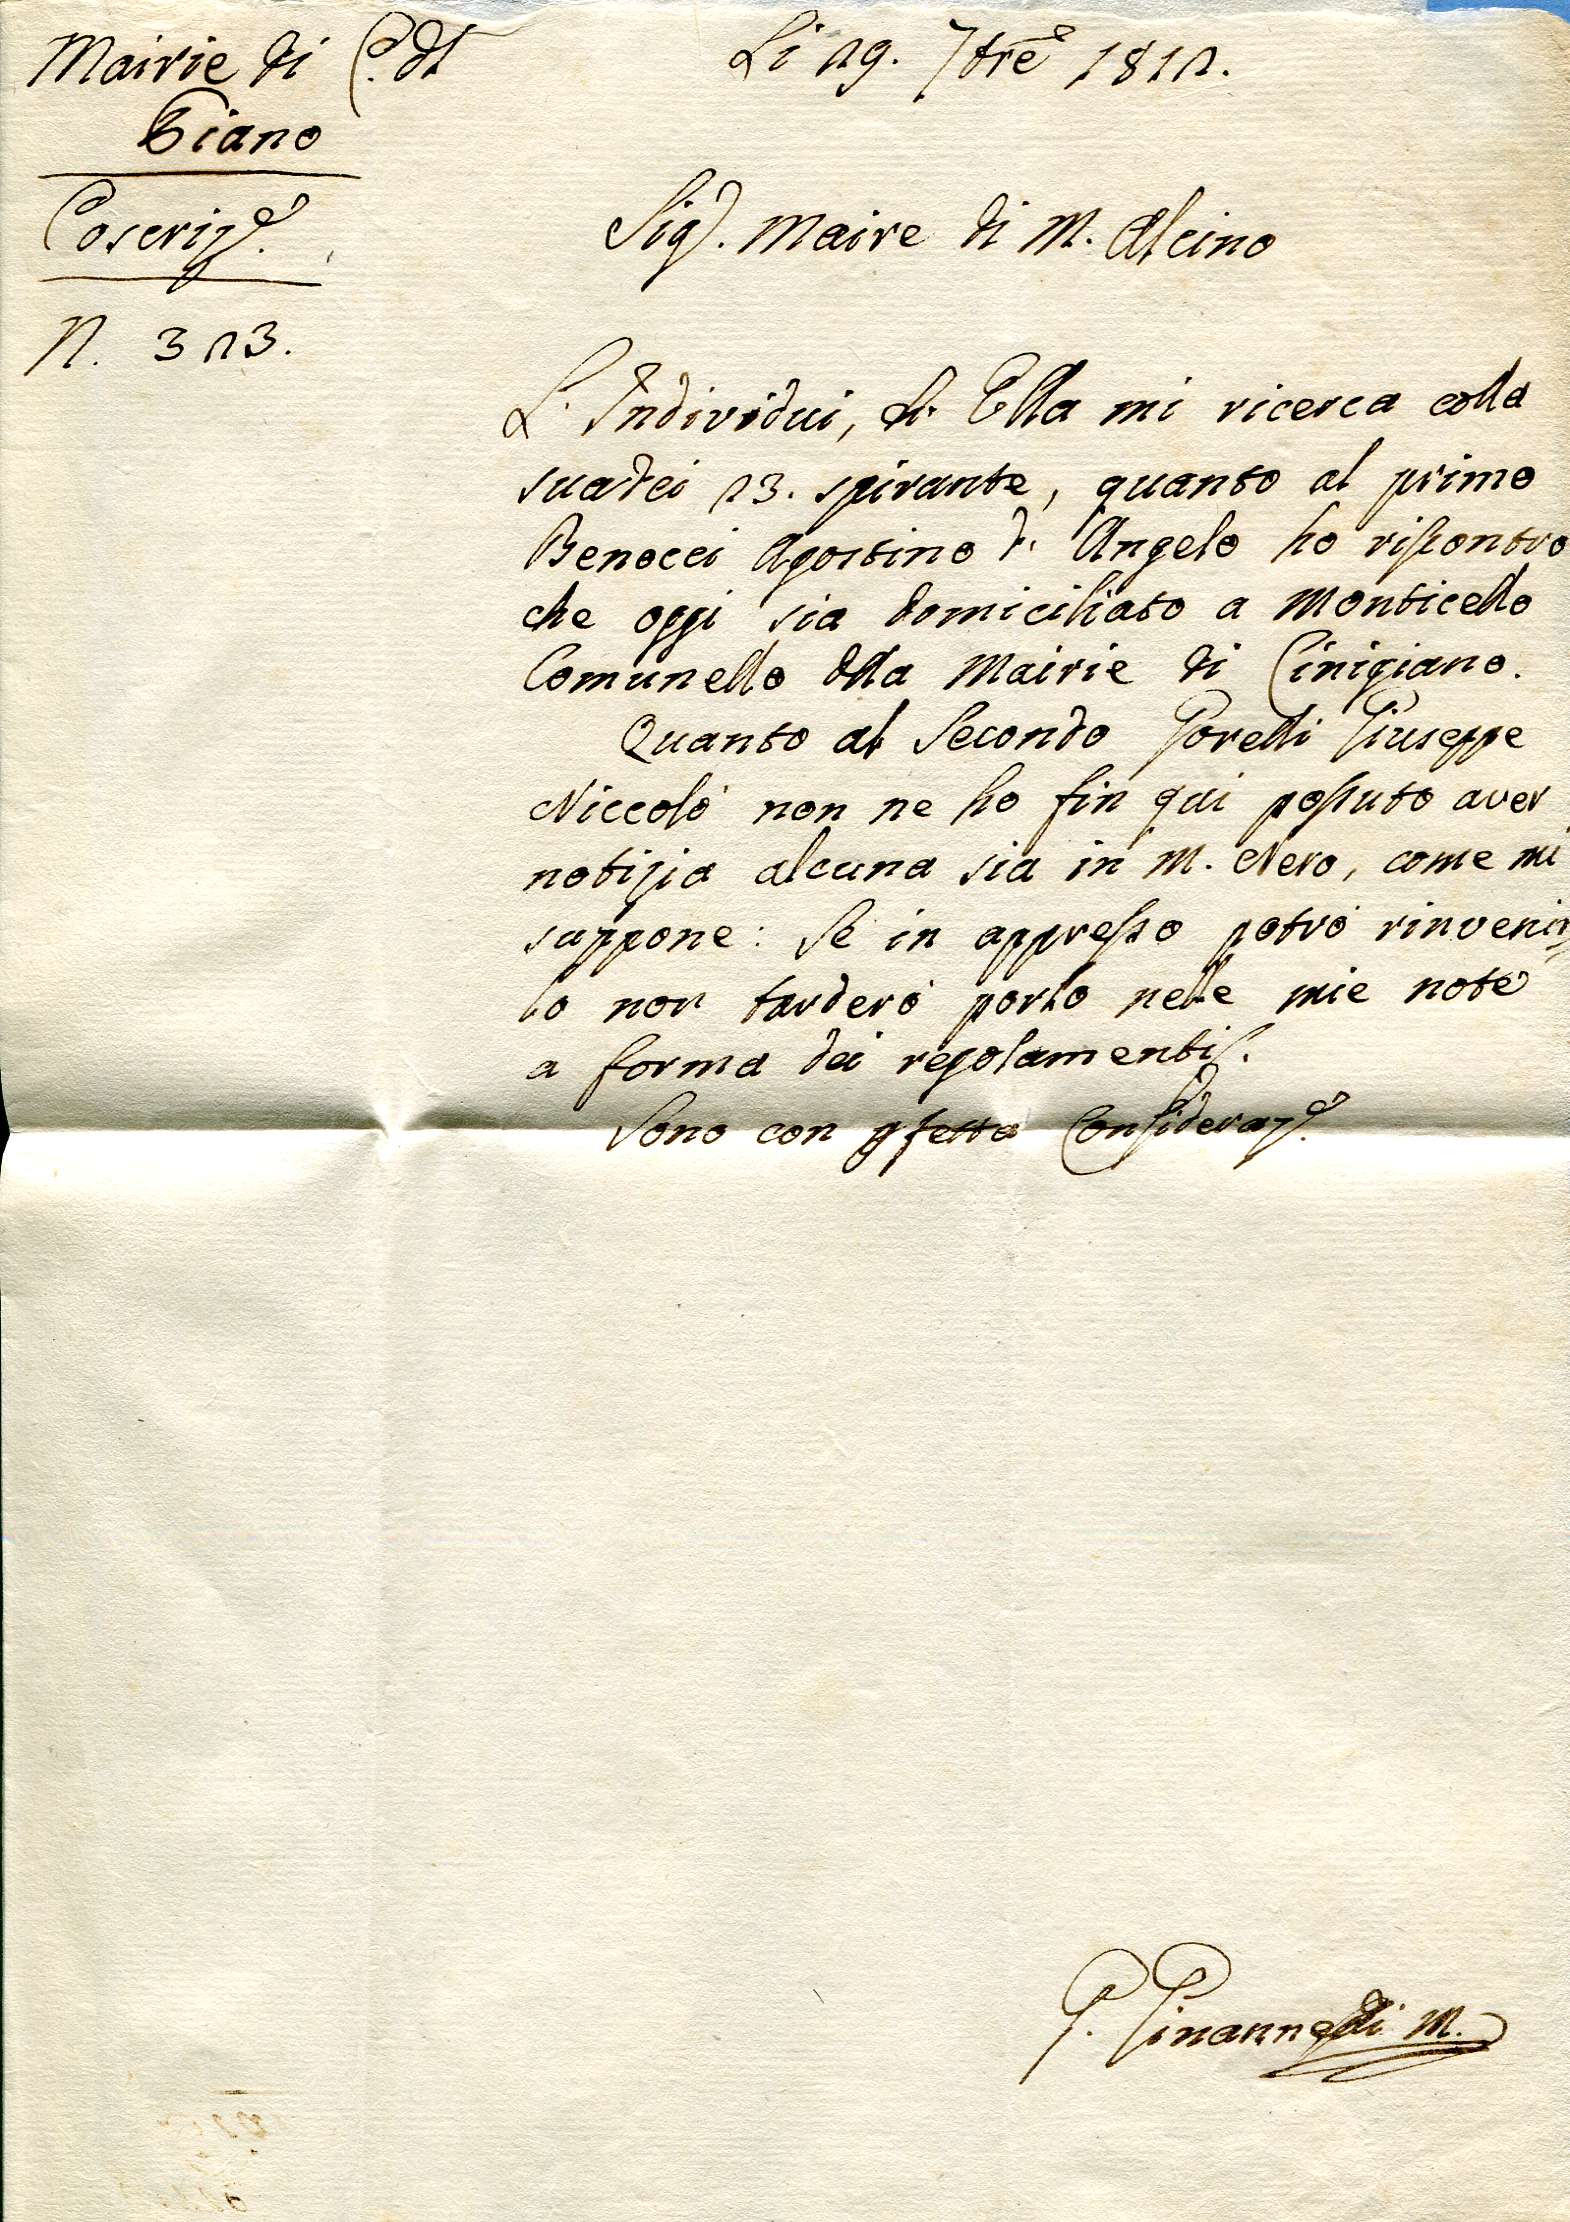 Mairie di C. del
Piano
Coscriz.e
N. 323.
Li 29. 7bre 1812.
Sig.r Maire di M. Alcino
L'Individui, ch. Ella mi ricerca colla
sua dei 23. spirante, quanto al primo
Benocci Agostino d. Angelo ho riscontro
che oggi sia domiciliato a Monticello
Comunello della Mairie di Cinigiano.
Quanto al Secondo Gorelli Giuseppe
Niccolò non ne ho fin qui possuto aver
notizia alcuna sia in M. Nero, come mi
suppone: Se in appresso potrò rinvenir=
lo non tarderò porlo nelle mie note
a forma dei regolamenti.
Sono con pfetta Consideraz.e
G. Giannelli M.